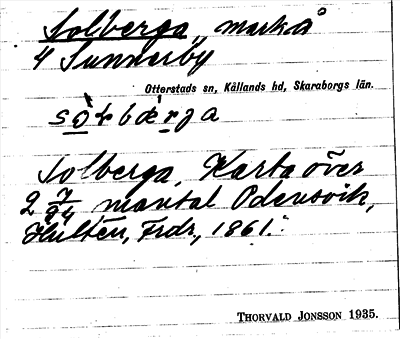 Solberga, mark å
4 Sunnerby
Otterstads sn, Kållands hd, Skaraborgs län.
Solberga, Karta över
2 7/24 mantal Odensvik,
Hultén, Frdr, 1861.
THORVALD JONSSON 1935.